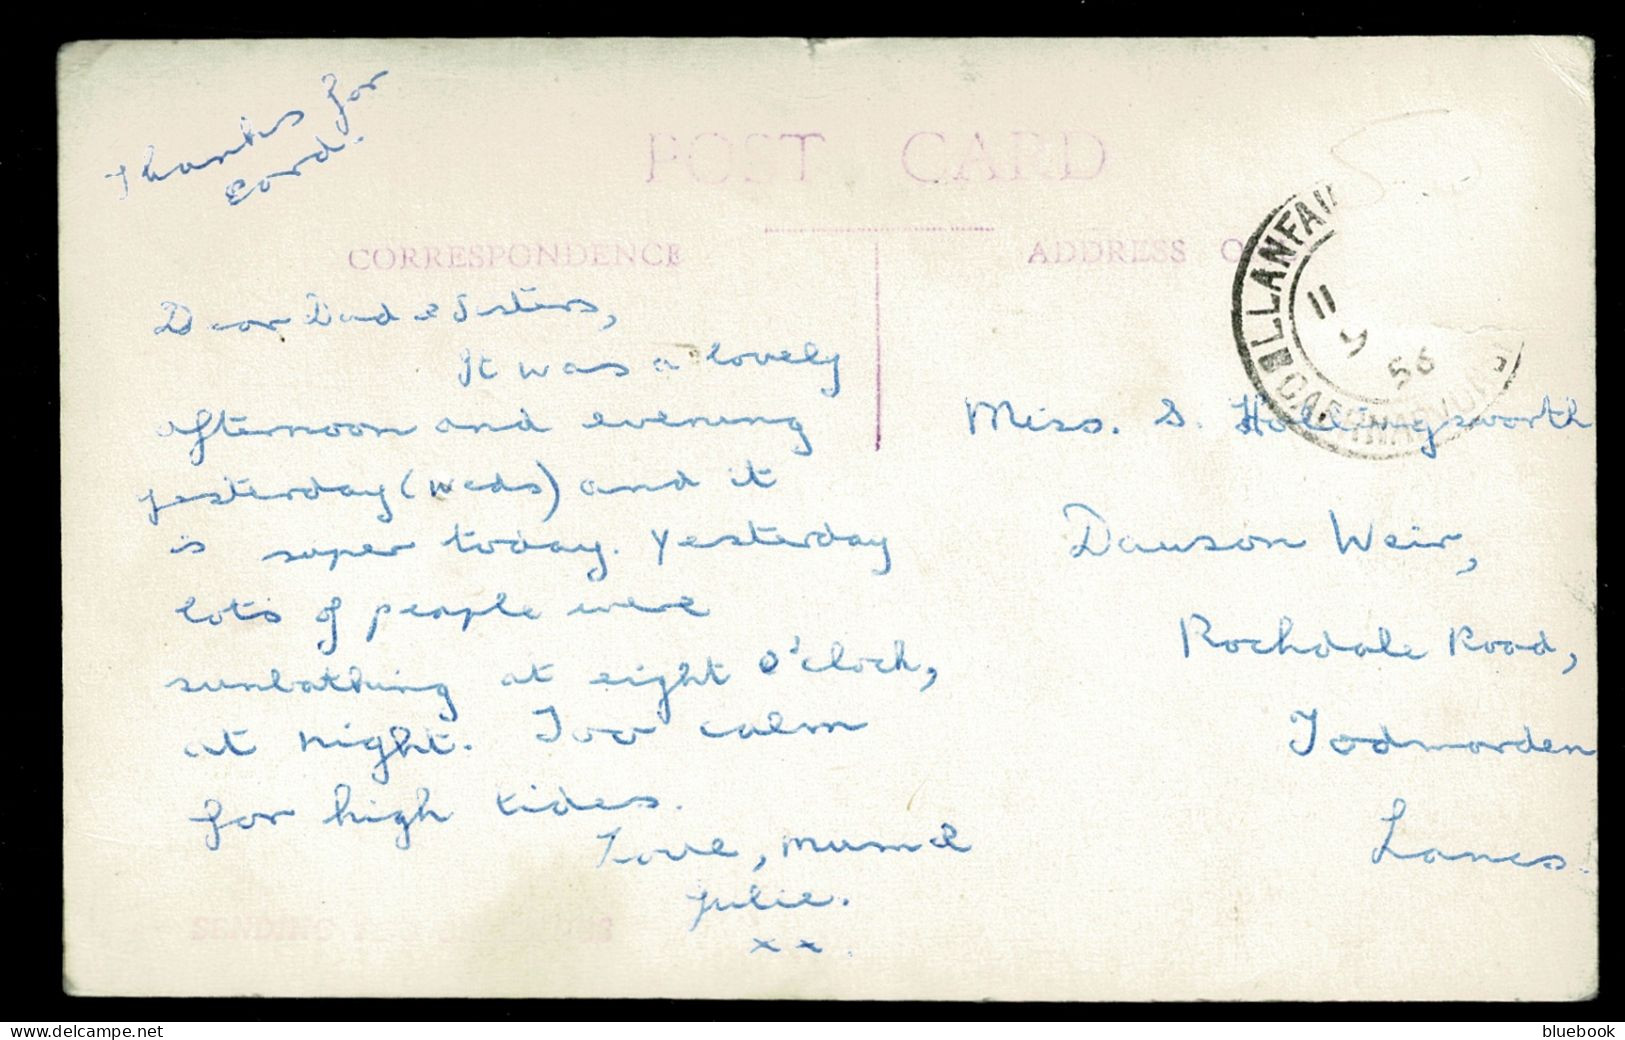 Thanks for
card.
POST CARD
CORRESPONDENCE
ADDRESS O
LLANFAI
11
56
CAERNARVON
Dear Dad & Sisters,
It was a lovely
afternoon and evening
yesterday (Weds) and it
is super today. Yesterday
lots of people were
sunbathing at eight o'clock,
at night. Too calm
for high tides.
Love, Mum &
Julie.
x x.
Miss. S. Hollingsworth
Dawson Weir,
Rochdale Road,
Todmorden
Lancs.
SENDING
bluebook